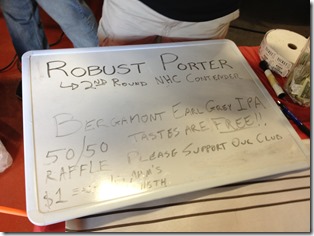 ROBUST PORTER
↳ 2ND ROUND NHC CONTENDER
BERGAMONT EARL GREY IPA
50/50 TASTES ARE FREE!!,
RAFFLE PLEASE SUPPORT OUR CLUB
$1